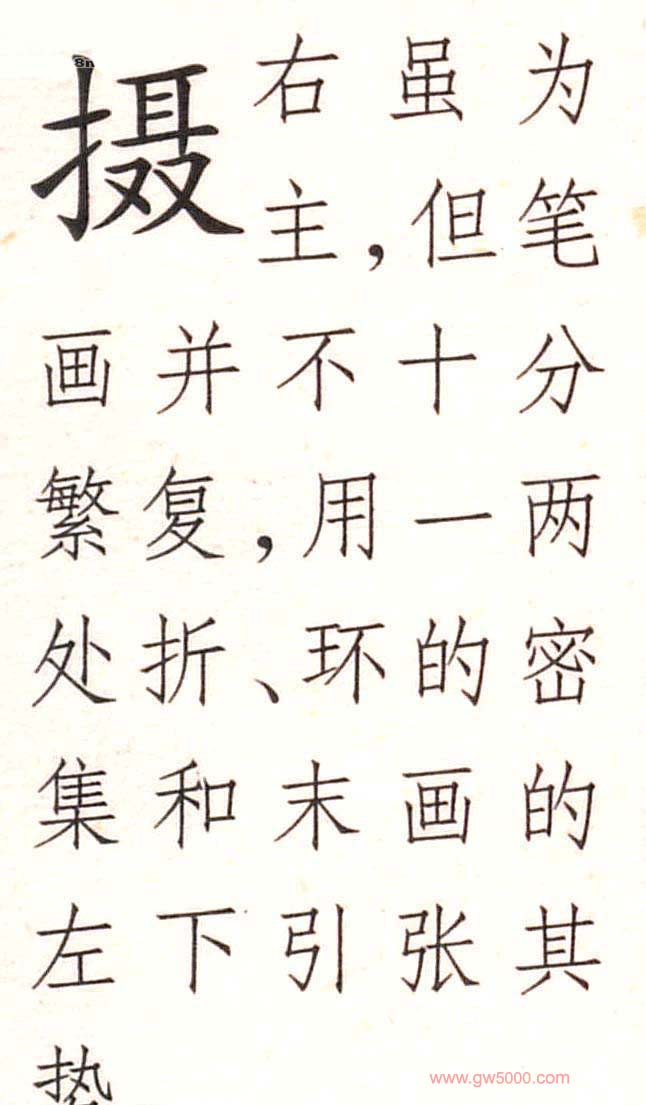 摄
右虽为
主，但笔
画并不十分
繁复，用一两
处折、环的密
集和末画的
左下引张其
势
www.gw5000.com